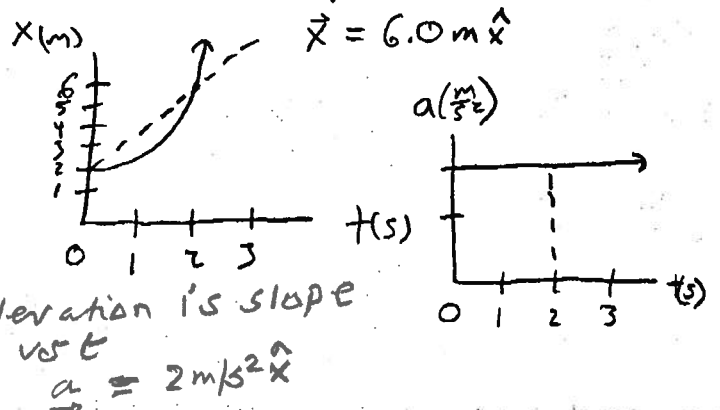 X(m)
x⃗ = 6.0 m x̂
6
5
4
3
2
1
0 1 2 3
t(s)
a(m/s²)
0 1 2 3
t(s)
leration is slope
vs t
a = 2 m/s² x̂